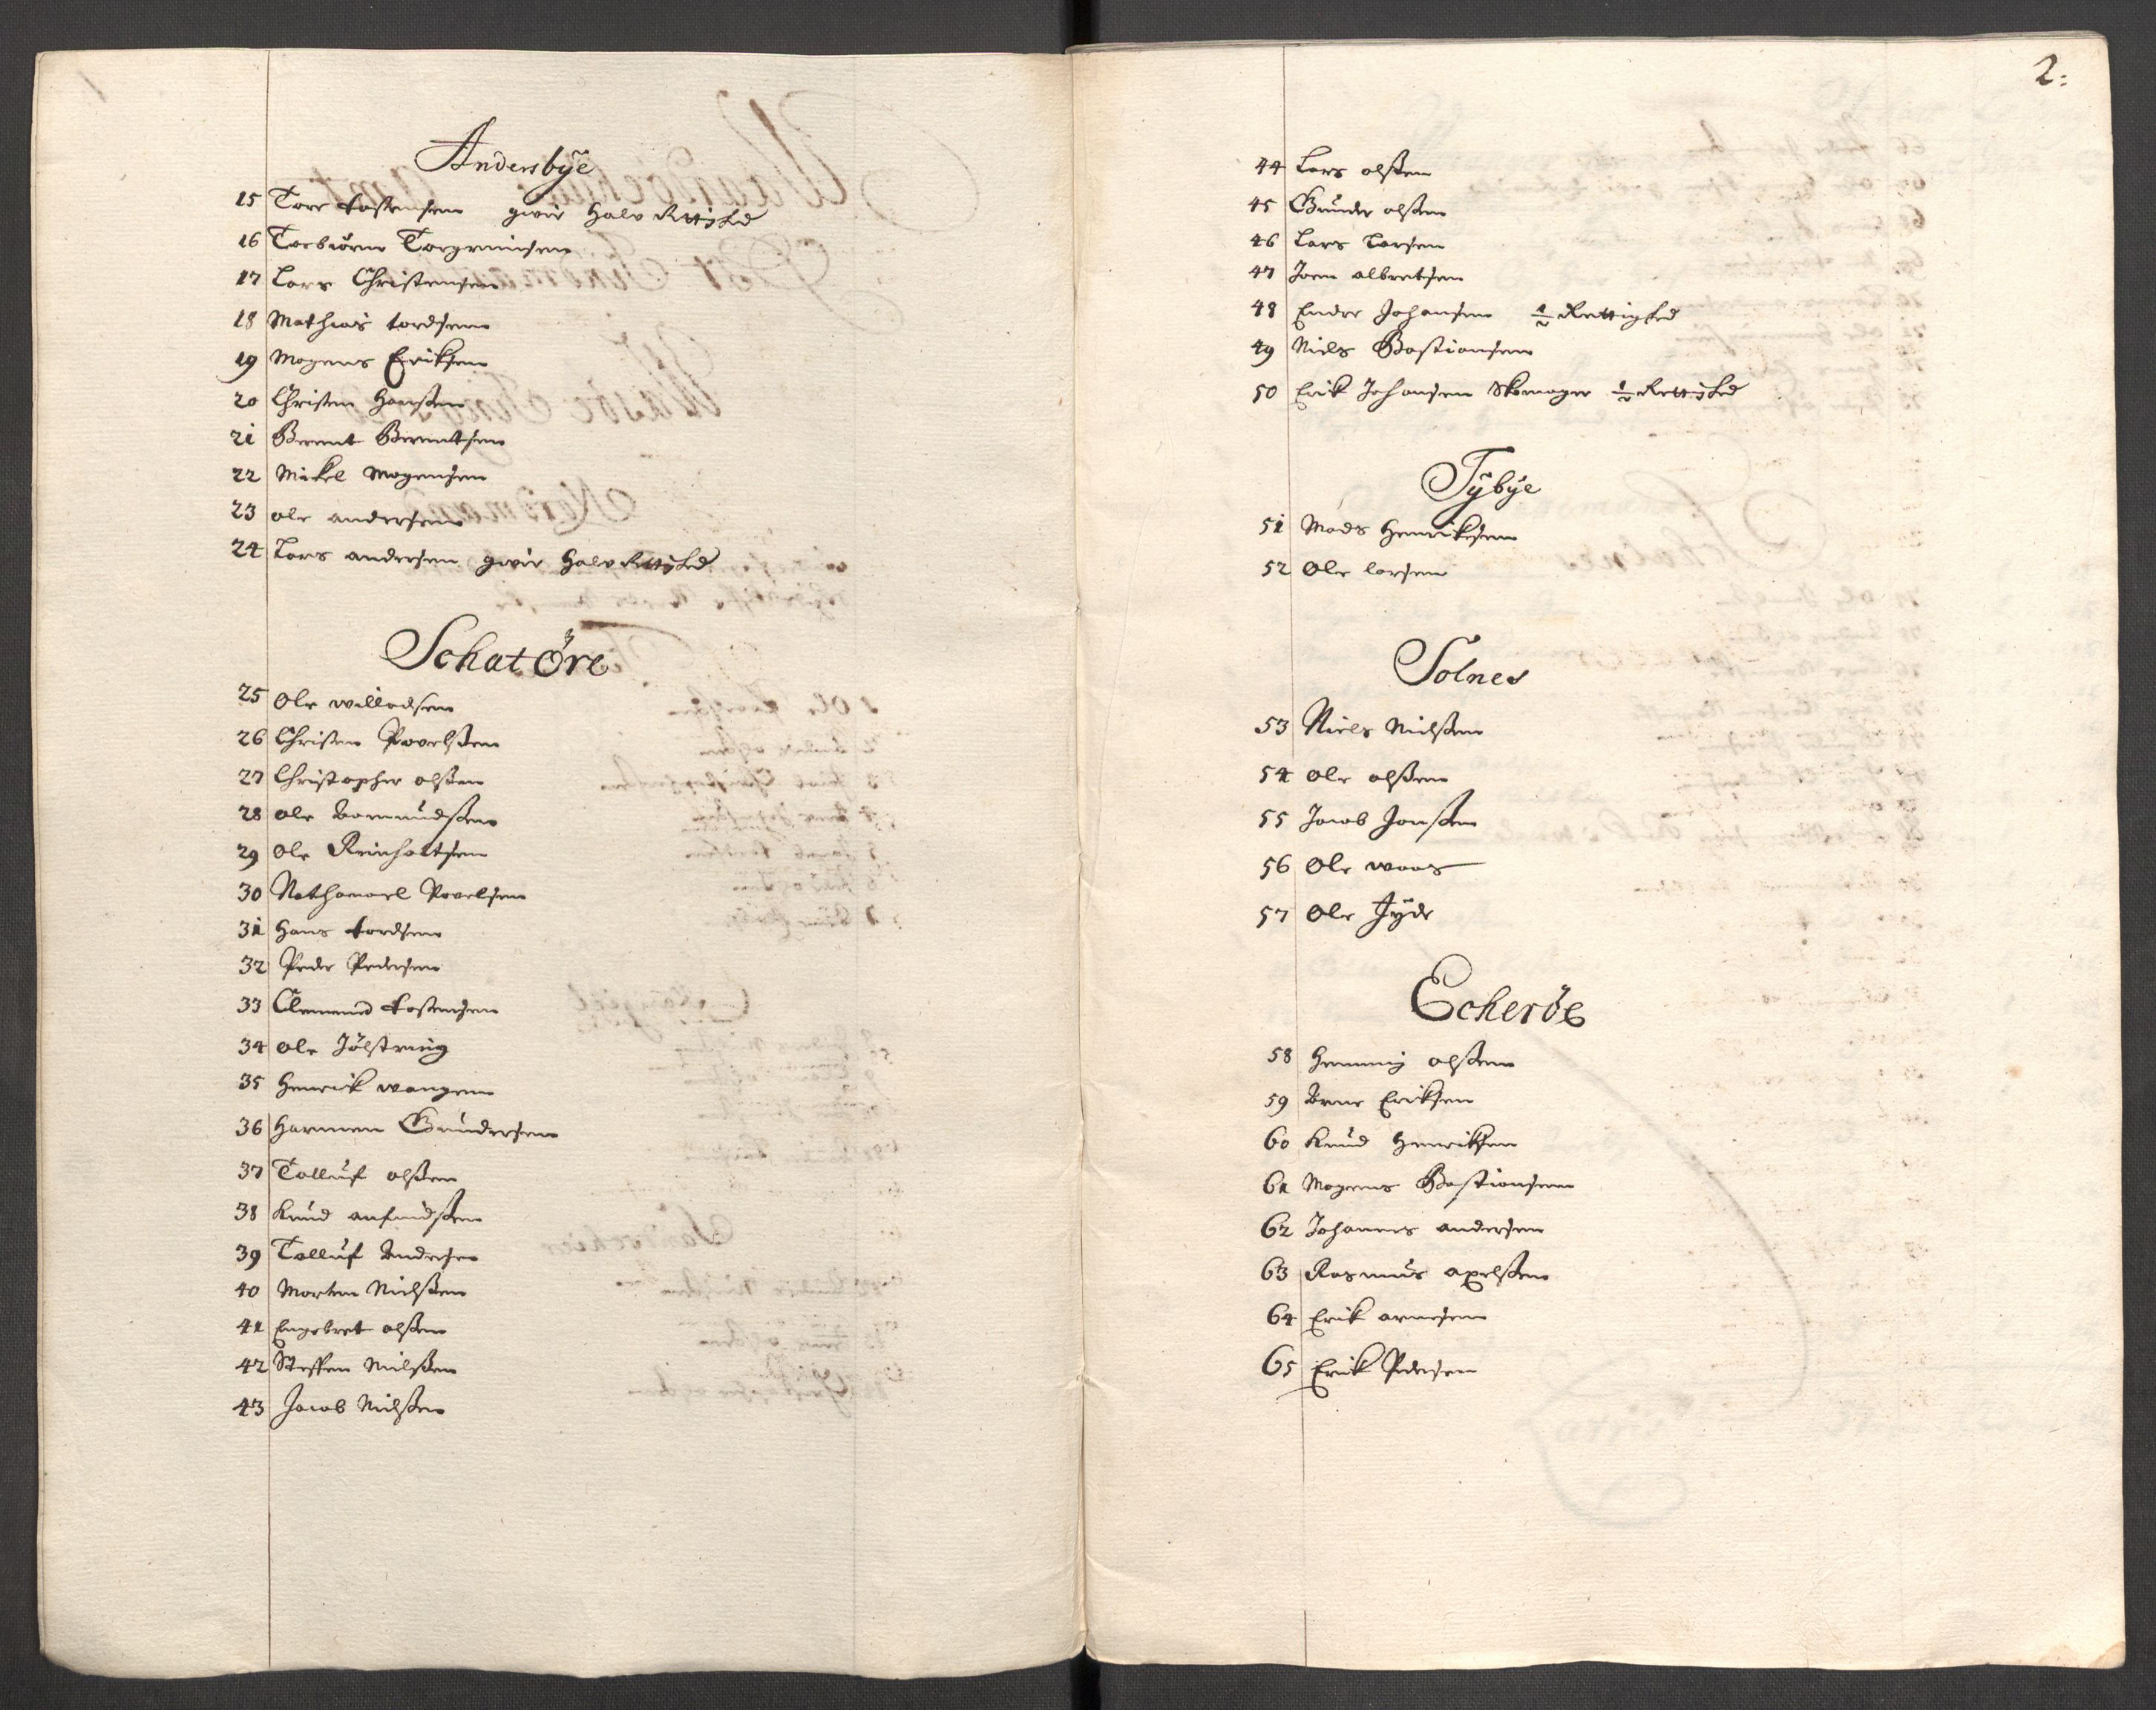 Andersbÿe
15 Tore tostensen giver Halv Rettighed
16 Torbiörn Torgrimsen
17 Lars Christensen
18 Mathias tordsen
19 Mogens Eriksen
20 Christen Hansen
21 Berent Berentsen
22 Mikel Mogensen
23 ole andersen
24 Lars andersen giver Halv Rettighed
Schatöre
25 Ole willadsen
26 Christen Povelsen
27 Christopher olsen
28 ole Aamundsen
29 Ole Reinhartsen
30 Nathanael Povelsen
31 Hans tordsen
32 Peder Pedersen
33 Clemend tostensen
34 ole Jölstring
35 Henrik wangen
36 Harmen Gundersen
37 Tolluf olsen
38 Knud anfindsen
39 Tolluf Andersen
40 Morten Nielsen
41 Engebret olsen
42 Steffen Nielsen
43 Jacob Nielsen
2:
44 Lars olsen
45 Gunder olsen
46 Lars Larsen
47 Joen albretsen
48 Endre Johansen 1/2 Rettighed
49 Niels Bastiansen
50 Erik Johansen Skomager 1/2 Rettighed
Tÿbÿe
51 Mads Henriksen
52 Ole larsen
Solnes
53 Niels Nielsen
54 Ole olsen
55 Jacob Jonsen
56 Ole waas
57 Ole Jÿde
Echeröe
58 Heming olsen
59 Arne Eriksen
60 Knud Henriksen
61 Mogens Bastiansen
62 Johannes andersen
63 Rasmus axelsen
64 Erik arnesen
65 Erik Pedersen